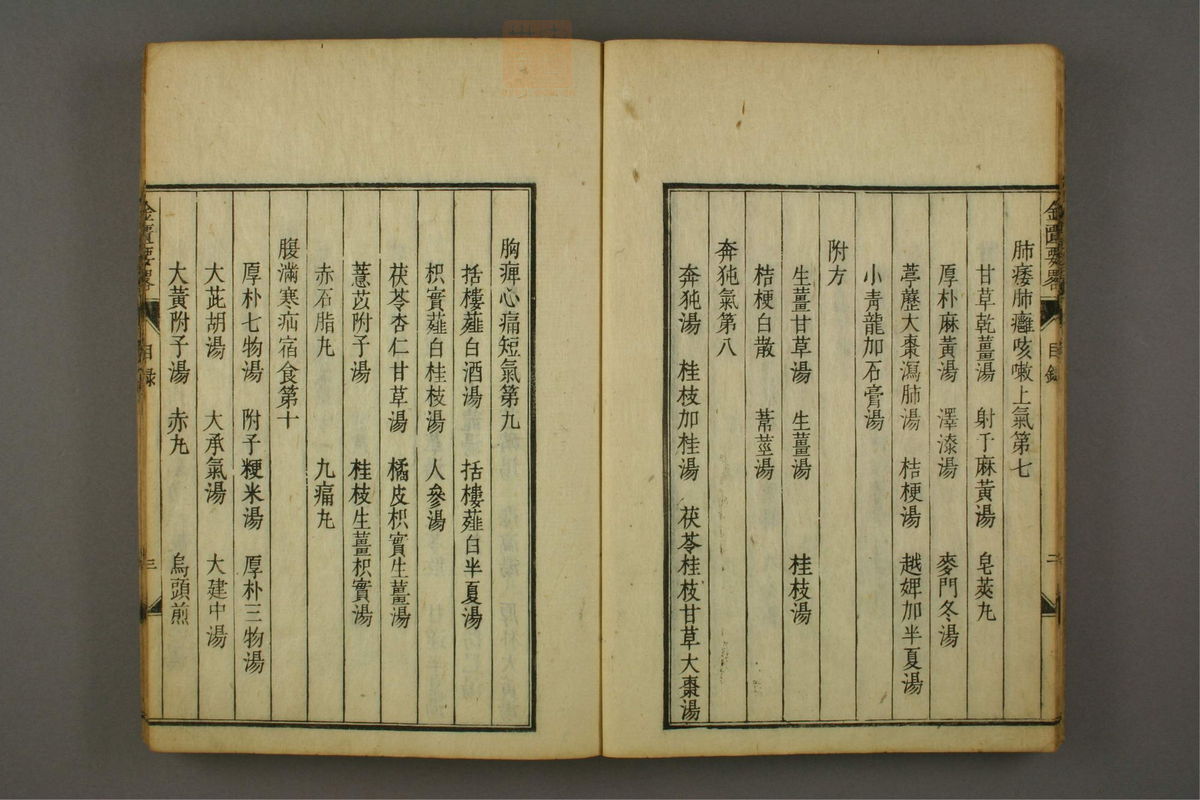 金匱要畧 目録 二
肺痿肺癰咳嗽上氣第七
甘草乾薑湯 射干麻黃湯 皂莢丸
厚朴麻黃湯 澤漆湯 麥門冬湯
葶藶大棗瀉肺湯 桔梗湯 越婢加半夏湯
小青龍加石膏湯
附方
生薑甘草湯 生薑湯 桂枝湯
桔梗白散 葦莖湯
奔㹠氣第八
奔㹠湯 桂枝加桂湯 茯苓桂枝甘草大棗湯
胸痺心痛短氣第九
括樓薤白酒湯 括樓薤白半夏湯
枳實薤白桂枝湯 人參湯
茯苓杏仁甘草湯 橘皮枳實生薑湯
薏苡附子湯 桂枝生薑枳實湯
赤石脂丸 九痛丸
腹滿寒疝宿食第十
厚朴七物湯 附子粳米湯 厚朴三物湯
大茈胡湯 大承氣湯 大建中湯
大黃附子湯 赤丸 烏頭煎
金匱要畧 目録 三